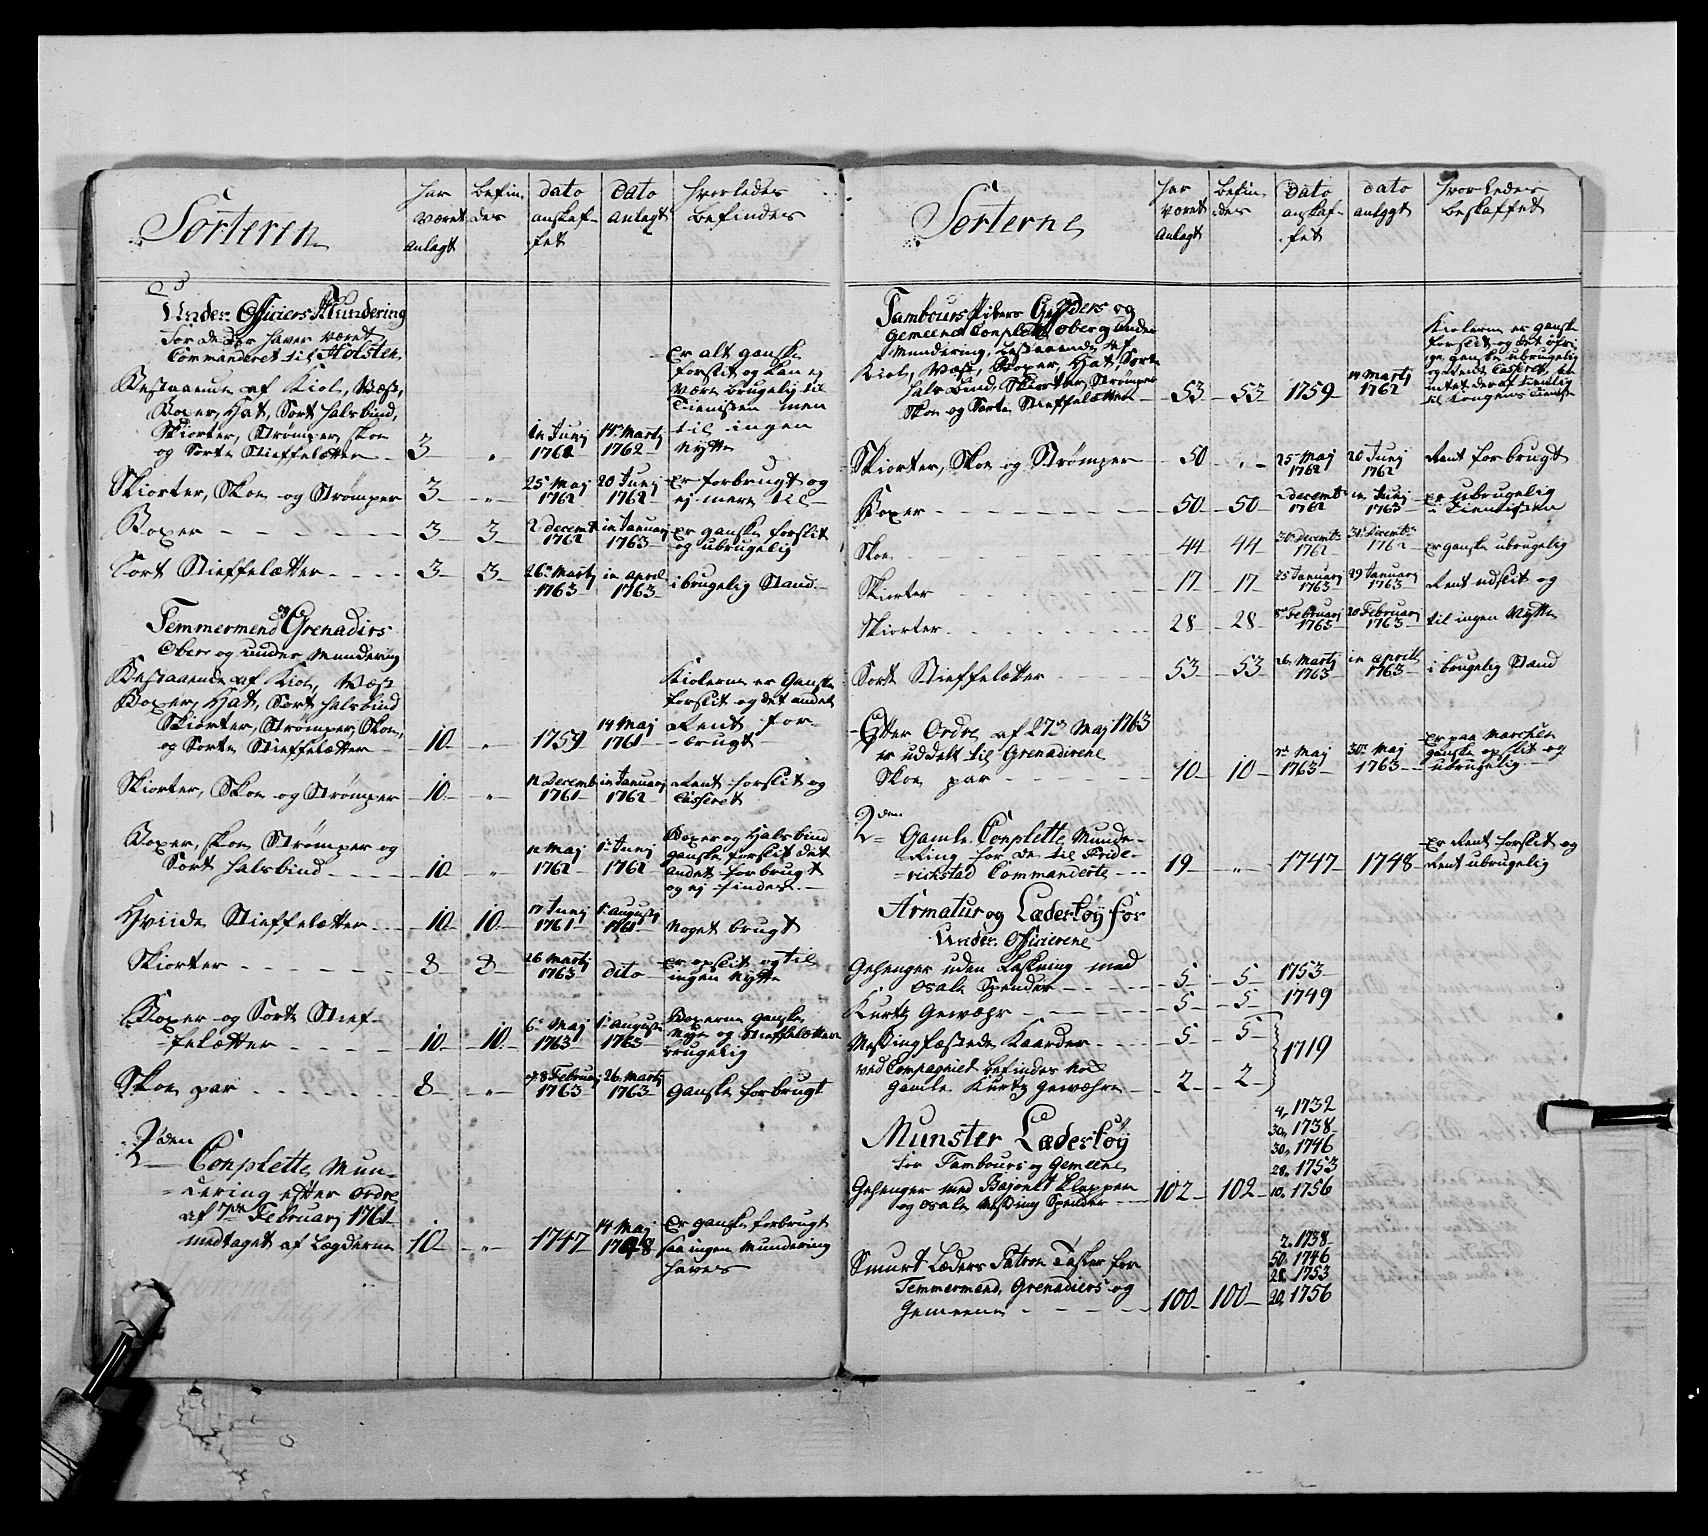 Sorteren
har været anlagt
befindes
dato anskaffet
dato anlagt
hvorledes befindes
Under Officiers Mundering
for de der haver været
Commanderet til Holsten,
Bestaaende af Kiol, Væst,
Boxer, Hat, Sort halsbind,
Skiorter, Strømper, skoe
og Sorte Stieffeletter 3 " 14 Martj 1762
Er alt ganske
forslit og kan ej
være brugelig til
Tienisten men
til ingen
Nytte
Skiorter, Skoe og Strømper 3 " 25 Maj 1762 20 Junj 1762 Er forbrugt og
ej mere til
Boxer 3 3 2 decemb 1762 in Januarj 1763 er ganske forslit
og ubrugelig
Sort Stieffeletter 3 3 26 Martj 1763 in april 1763 i brugelig Stand
Temmermend og Grenadirs
Ober og under Mundering
Bestaaende af Kiol, Væst
Boxer, Hat, Sort halsbind
Skiorter, Strømper, Skoe,
og Sorte Stieffeletter 10 " 1759 14 Maj 1761
Kiolerne er Ganske
forslit og det andet
Rent for-
brugt
Skiorter, Skoe og Strømper 10 " Decemb 1761 in Januarj 1762 Rent forslit og
Casseret
Boxer, skoe Strømper og
Sort halsbind 10 " Maj 1762 Junj 1762
Boxer og Halsbind
ganske forslit det
andet forbrugt
og ej findes
Hviide Stieffeletter 10 10 17 Junj 1761 1 Augustj 1761 Noget brugt
Skiorter 8 8 26 Martj 1763 dito er opslit og til
ingen Nytte
Boxer og Sorte Stief-
feletter 10 10 6 Maj 1763 1 August 1763
Boxerne ganske
Nye og Stieffeletter
brugelig
Skoe par 8 " 8 Februarj 1763 26 Martj 1763 Ganske forbrugt
2den
Conplette Mun-
dering efter ordre
af 7de Februarj 1761
medtaget af Lægderne 10 " 1747 14 Maj 1748
Er ganske forbrugt
saa ingen Mundering
haves
Sorterne
har været anlagt
befindes
dato anskaffet
dato anlaggt
hvorledes beskaffet
Tambours Pibers og
Gemeene Conplett ober og under
Mundering, bestaaende af
Kiol, Væst, Boxer, Hat, Sorte
Hals bind, Skiorter, Strømper
Skoe og Sorte Stieffeletter 53 53 1759 14 Martj 1762
Kiolerne er ganske
forslit og det øfri-
ge ganske ubrugelig
og Rent Casseret,
intet deraf tienlig
til Kongens Tieniste
Skiorter, Skoe og Strømper 50 " 25 Maj 1762 20 Junj 1762 Rent forbrugt
Boxer 50 50 2 decemb 1762 in Junj 1763 er ubrugelig
i Tienisten
Skoe 44 44 31 Decemb 1762 31 Decemb 1762 er ganske ubrugelig
Skiorter 17 17 25 Januarj 1763 29 Januarj 1763 Rent udslit og
Skiorter 28 28 8 Februarj 1763 20 Februarj 1763 til ingen Nytte
Sorte Stieffeletter 53 53 26 Martj 1763 in aprill 1763 i brugelig Stand
Efter Ordre af 27de Maj 1763
er uddelt til Grenadirene
Skoe par 10 10 Maj 1763 30 Maj 1763
Er paa Marchen
ganske opslit og
ubrugelig
2den
Gamle Conplette Munde-
Ring for de til Fride-
rickstad Commanderte 19 " 1747 1748 er Rent forslit og
Rent ubrugelig
Armatur og Lædertøy for
Under Officierene
Gehenger uden med
osale Spender 5 5 1753
Kurtz Gewæhr 5 5 1749
Messingfæstede Kaarder 5 5
ved Compagniet befindes
Gamle Kurtz Gewæhre 2 2
1719
Munster Lædertøy
for Tambours og Gemeene
Gehenger med Bajonet Klappen
og osale Messing Spender 102 102
4, 1732
30, 1738
30, 1746
28, 1753
10, 1756
Smurt Læders Patron Tasker for
Temmermend, Grenadiers og
Gemeene 100 100
2, 1738
50, 1746
28, 1753
20, 1756